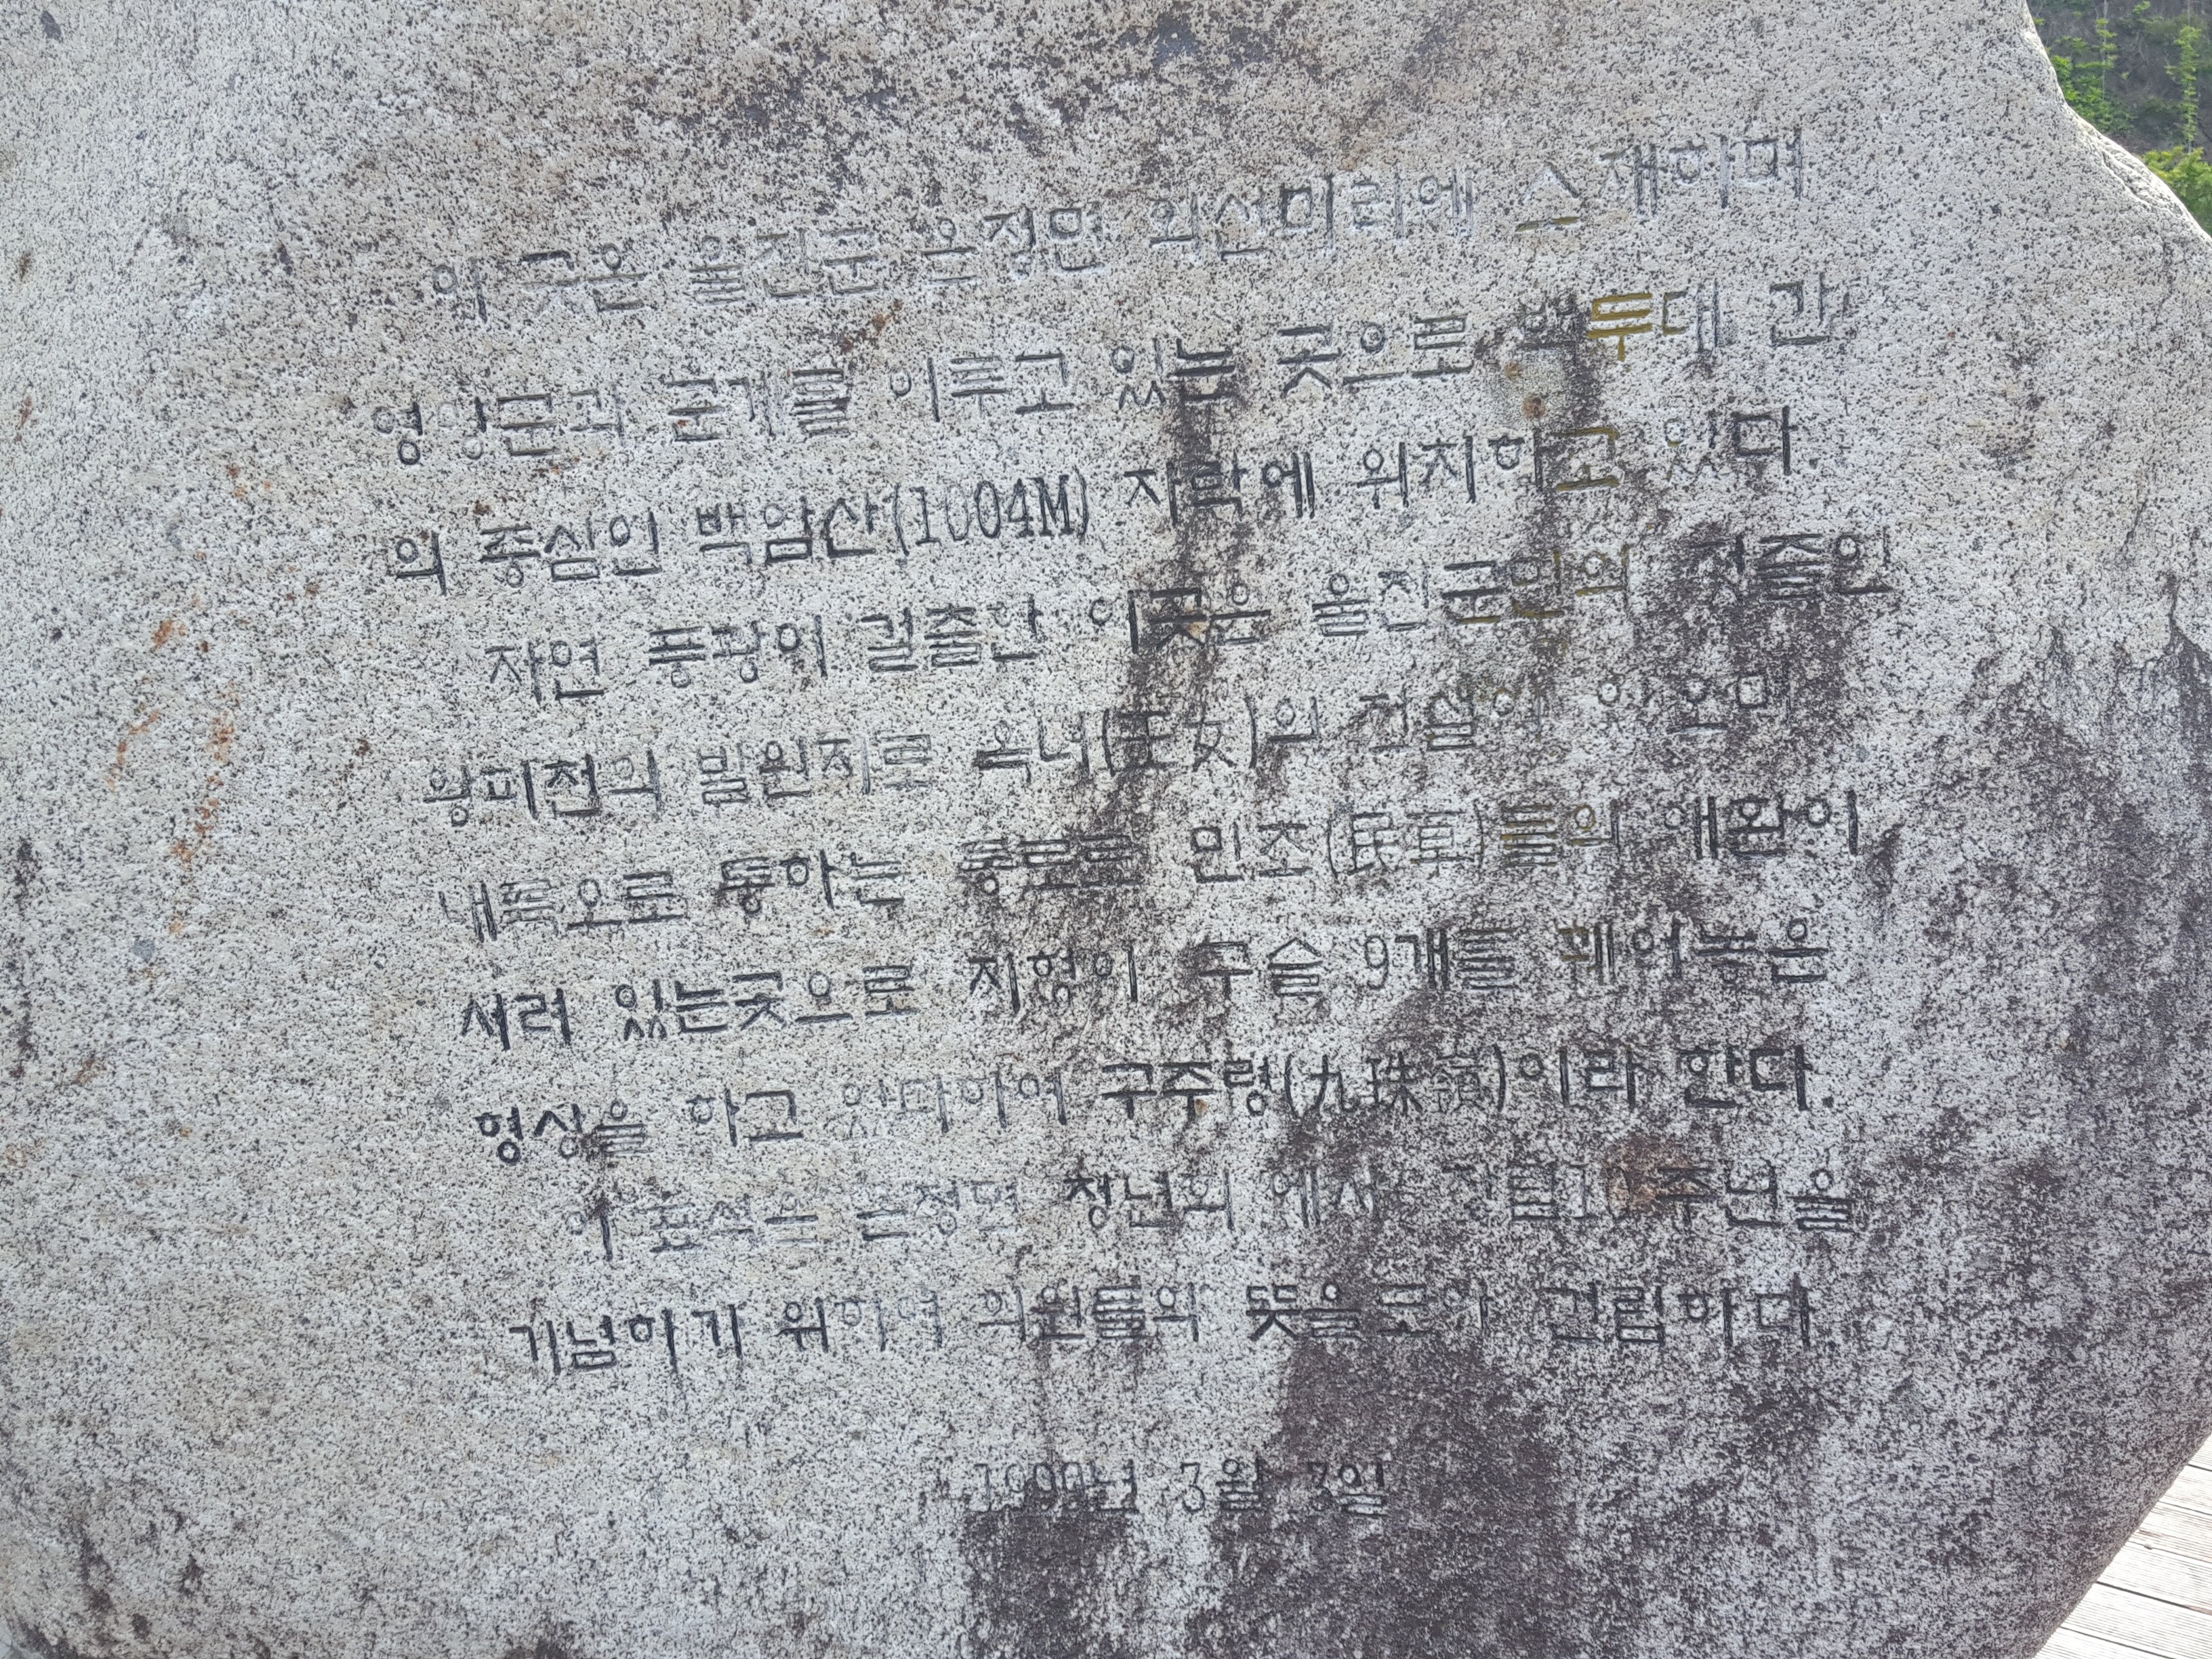 이 곳은 울진군 온정면 외선미리에 소재하며
영양군과 군계를 이루고 있는 곳으로 백두대 간
의 중심인 백암산(1004M) 자락에 위치하고 있다.
자연 풍광이 걸출한 이곳은 울진군민의 젖줄인
왕피천의 발원지로 옥녀(玉女)의 전설이
내륙으로 통하는 통로로 민초(民草)들의 애환이
서려 있는곳으로 지형이 구슬 9개를 꿰어놓은
형상을 하고 있다하여 구주령(九珠嶺)이라 한다.
이 표석은 온정면 청년회 에서 주년을
기념하기 위하여 의원들의 뜻을모아 건립하다.
3월 3일